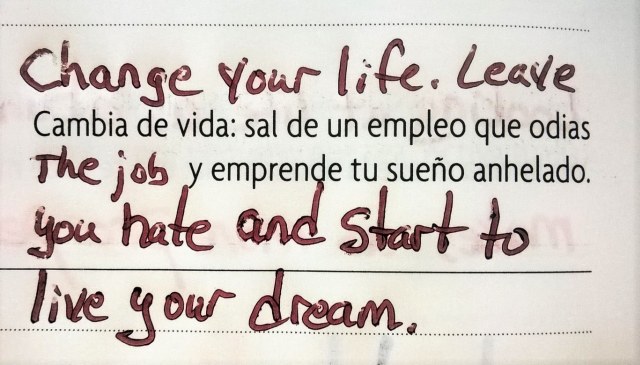 Change your life. Leave
Cambia de vida: sal de un empleo que odias
The job
y emprende tu sueño anhelado.
you hate and start to
live your dream.